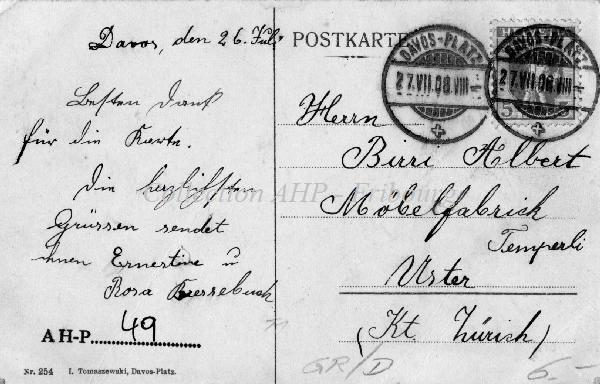 Davos, den 26. Juli
Besten Dank
für die Karte.
Die herzlichsten
Grüssen sendet
ihnen Ernestine u
Rosa
AH-P 49
Nr. 254 I. Tomaszewski, Davos-Platz.
POSTKARTE
DAVOS-PLATZ
27.VII.08.VIII
DAVOS-PLATZ
27.VII.08.VIII
5
Herrn
Birri Albert
Möbelfabrick
Temperli
Uster
(Kt. Zürich)
GR/D
6.-
Collection AHP - Fribourg